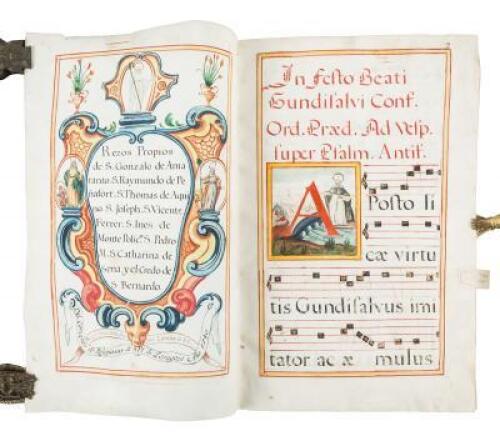 Rezos Propios
de S. Gonzalo de Ama
ranto. S. Raymundo de Pe
ñafort. S. Thomas de Aqui
no. S. Joseph. S. Vicente
Ferrer. S. Ines de
Monte Polic.º S. Pedro
M. S. Catharina de
Sena, y el Credo de
S. Bernardo.
In Festo Beati
Gundisalvi Conf.
Ord. Præd. Ad Vesp.
super Psalm. Antif.
A Posto li
cæ virtu
tis Gundisalvus imi
tator ac æ mulus